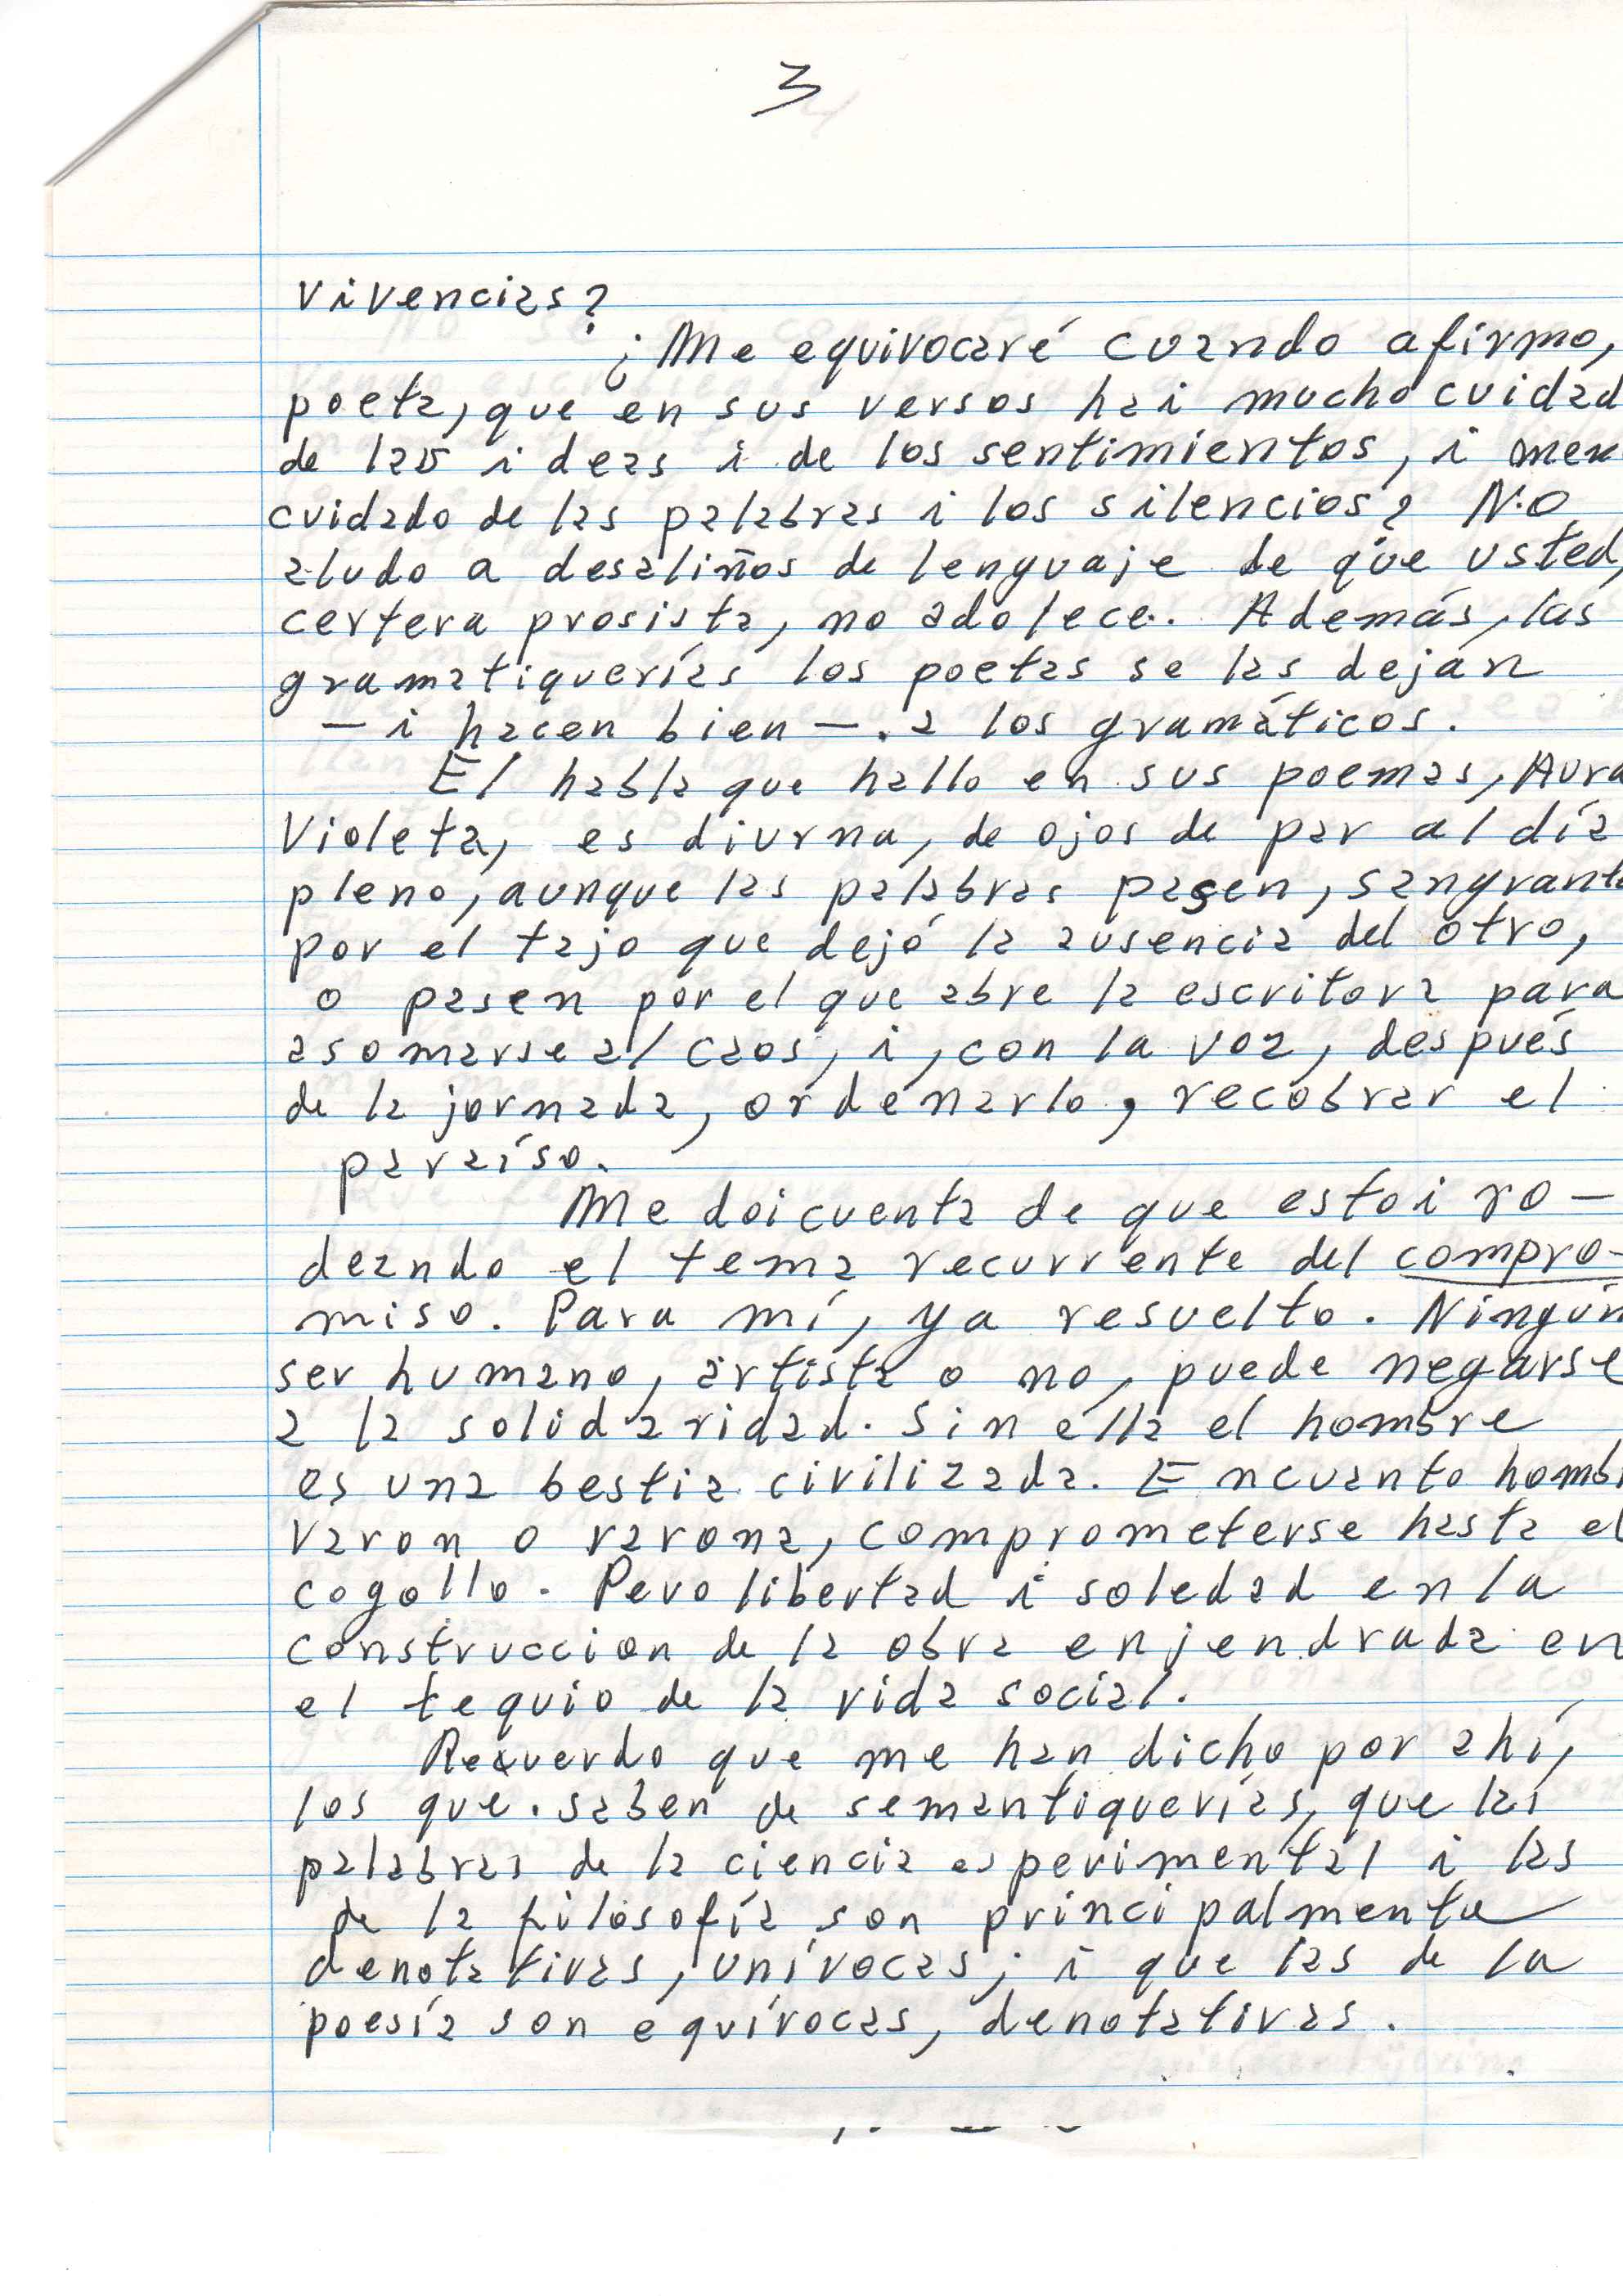 3
vivencias?
¿Me equivocaré cuando afirmo,
poeta, que en sus versos hai mucho cuidad
de las ideas i de los sentimientos, i men
cuidado de las palabras i los silencios? No
aludo a desaliños de lenguaje de que usted,
certera prosista, no adolece. Además, las
gramatiquerías los poetas se las dejan
— i hacen bien — a los gramáticos.
El habla que hallo en sus poemas, Aura
Violeta, es diurna, de ojos de par al día
pleno, aunque las palabras pasen, sangrante
por el tajo que dejó la ausencia del otro,
o pasen por el que abre la escritora para
asomarse al caos, i, con la voz, después
de la jornada, ordenarlo, recobrar el
paraíso.
Me doi cuenta de que estoi ro-
deando el tema recurrente del compro-
miso. Para mí, ya resuelto. Ningún
ser humano, artista o no, puede negarse
a la solidaridad. Sin ella el hombre
es una bestia civilizada. En cuanto homb
varon o varona, comprometerse hasta el
cogollo. Pero libertad i soledad en la
construccion de la obra enjendrada en
el tequio de la vida social.
Recuerdo que me han dicho por ahí,
los que saben de semantiquerías, que las
palabras de la ciencia esperimental i las
de la filosofía son principalmente
denotativas, unívocas; i que las de la
poesía son equívocas, denotativas.